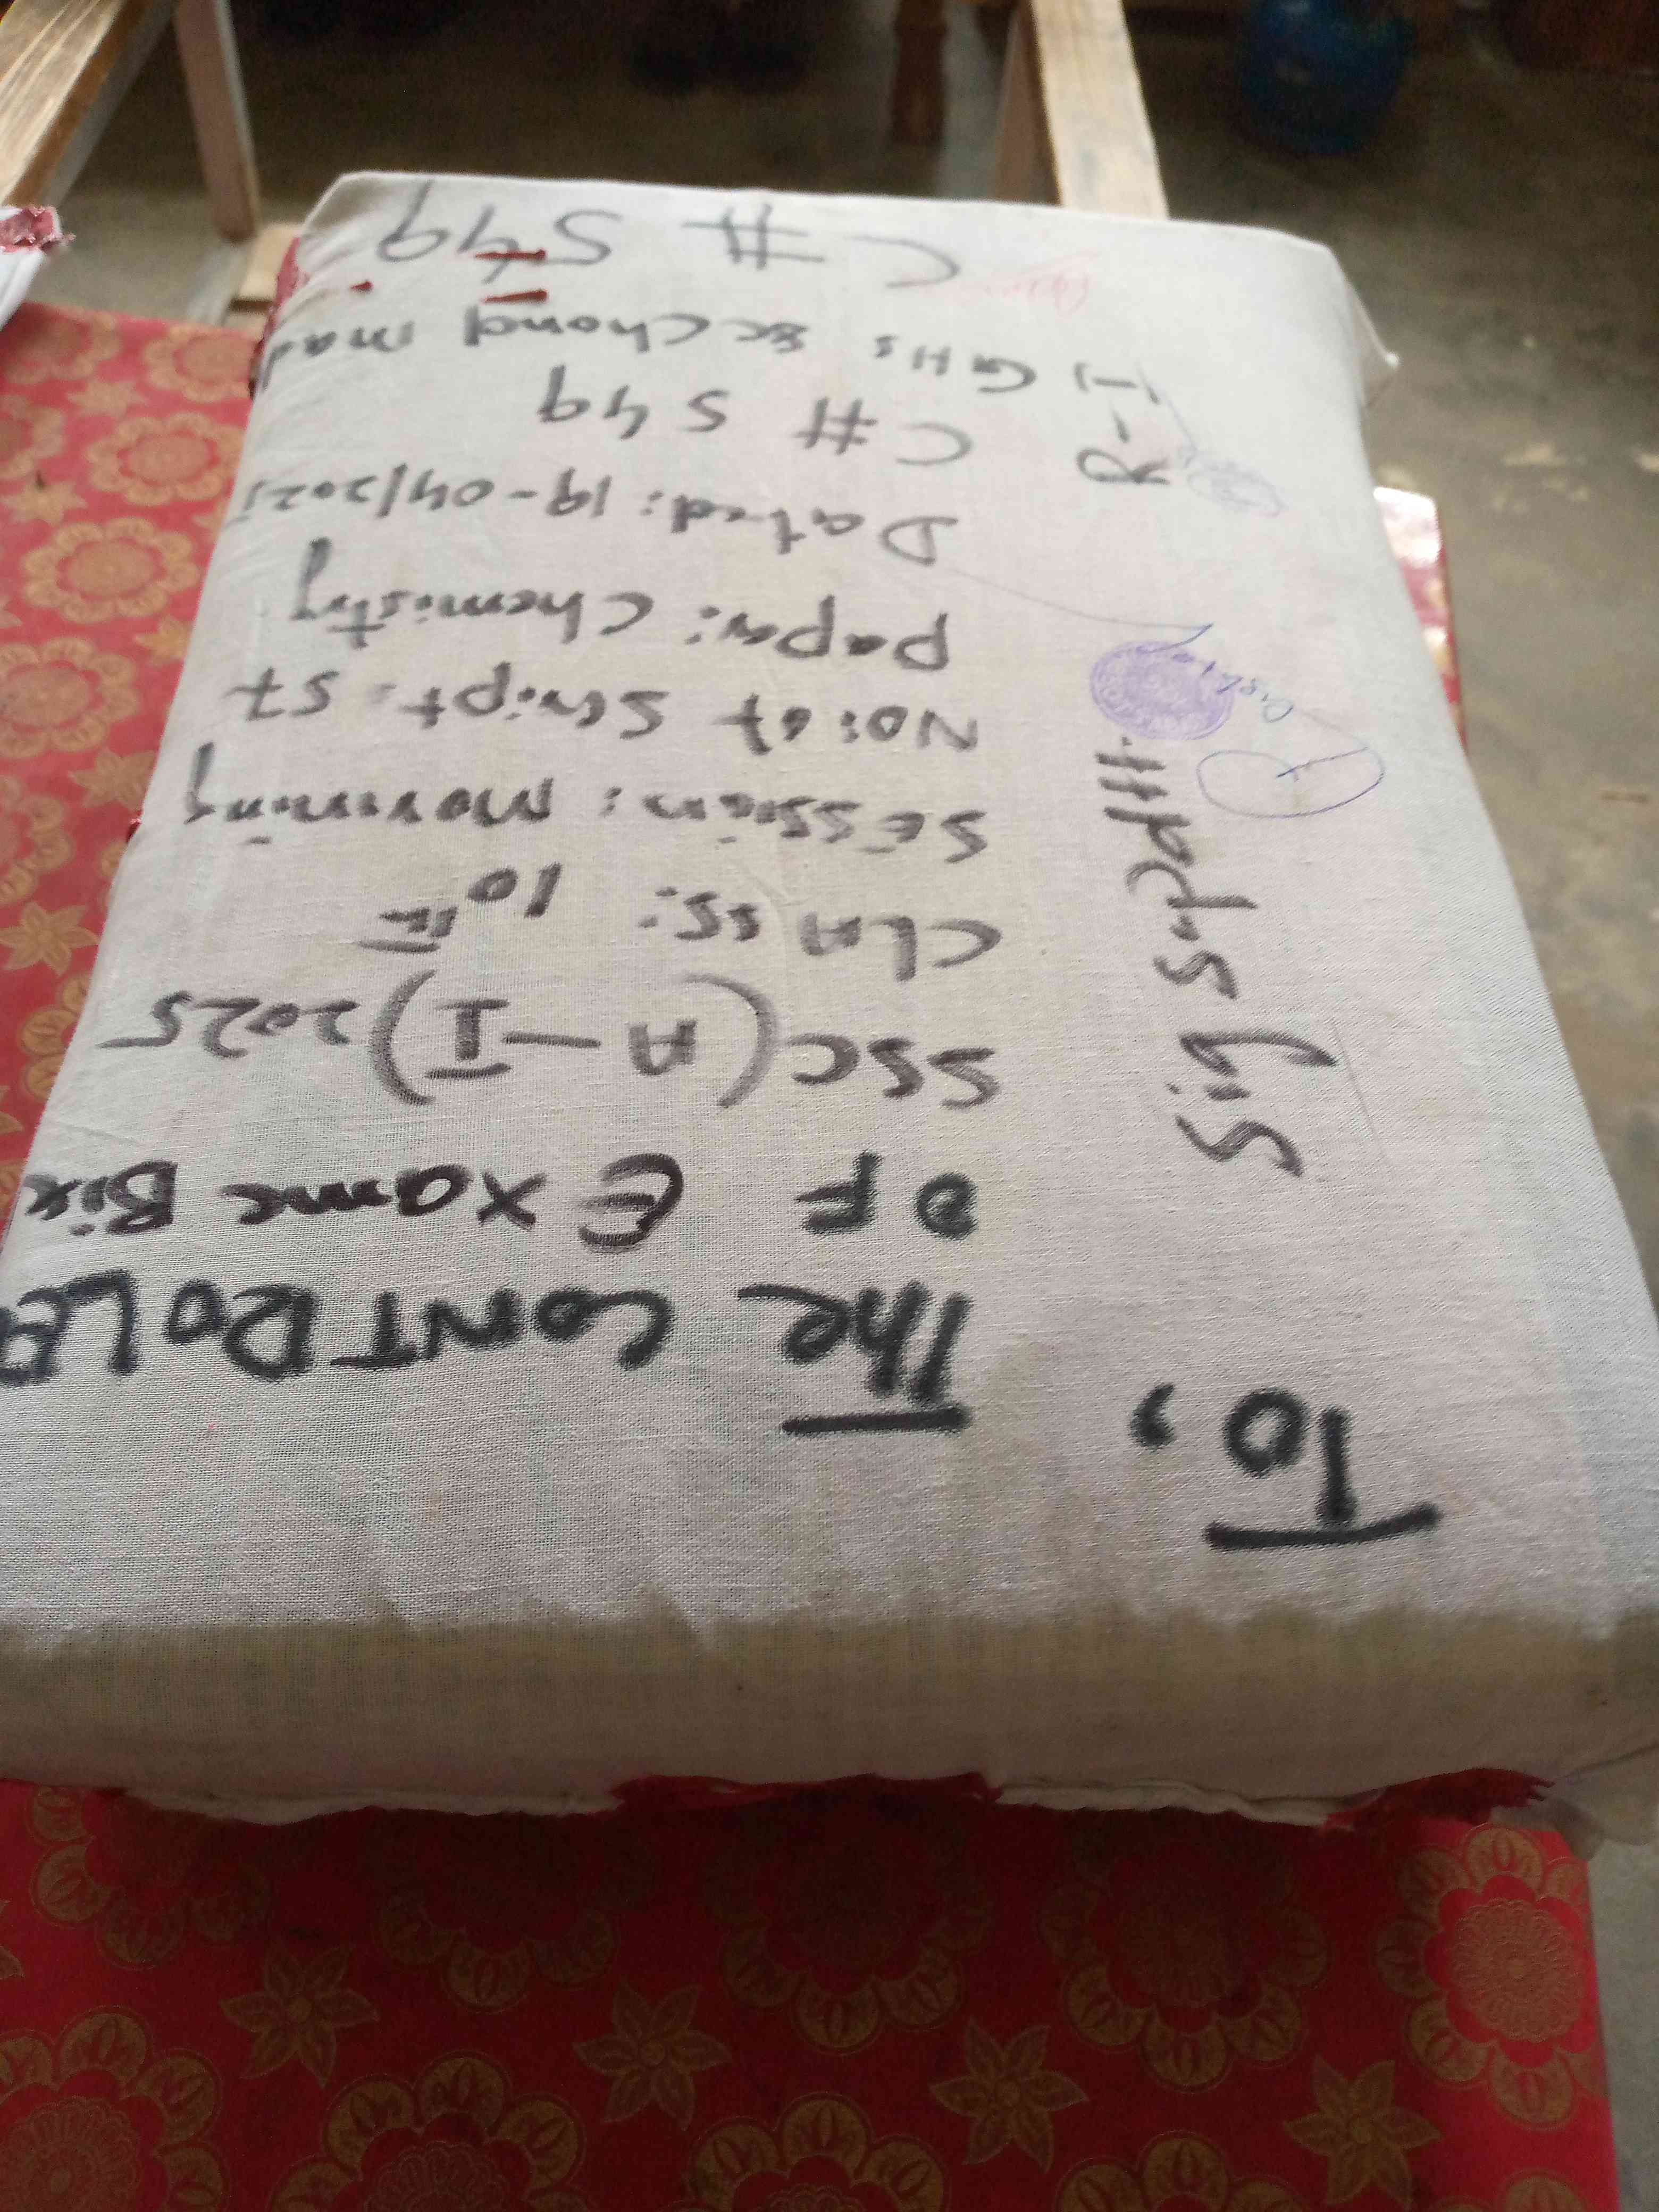 To,
The CONTROLER
OF Exame Bise
SSC (A-I) 2025
CLASS: 10th
SESSION: Morening
No: of Script: 57
Paper: Chemistry
Dated: 19-04/2025
C # 549
R-I GHS Chond mad
C # 549
Sig Supdtt